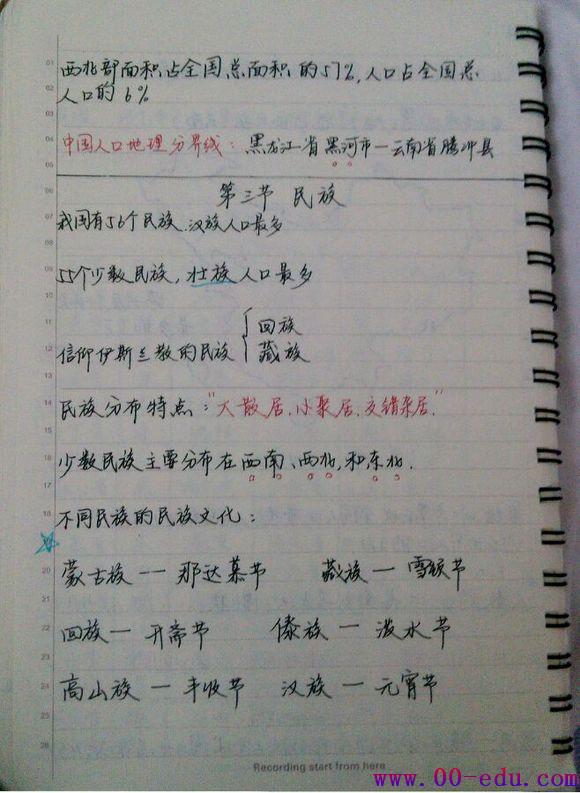 西北部面积占全国总面积的57%,人口占全国总
人口的6%
中国人口地理分界线:黑龙江省黑河市—云南省腾冲县
第三节 民族
我国有56个民族.汉族人口最多
55个少数民族,壮族人口最多
信仰伊斯兰教的民族{回族
藏族
民族分布特点:"大散居、小聚居、交错杂居."
少数民族主要分布在西南、西北,和东北.
不同民族的民族文化:
蒙古族—那达慕节 藏族—雪顿节
回族—开斋节 傣族—泼水节
高山族—丰收节 汉族—元宵节
Recording start from here
www.00-edu.com